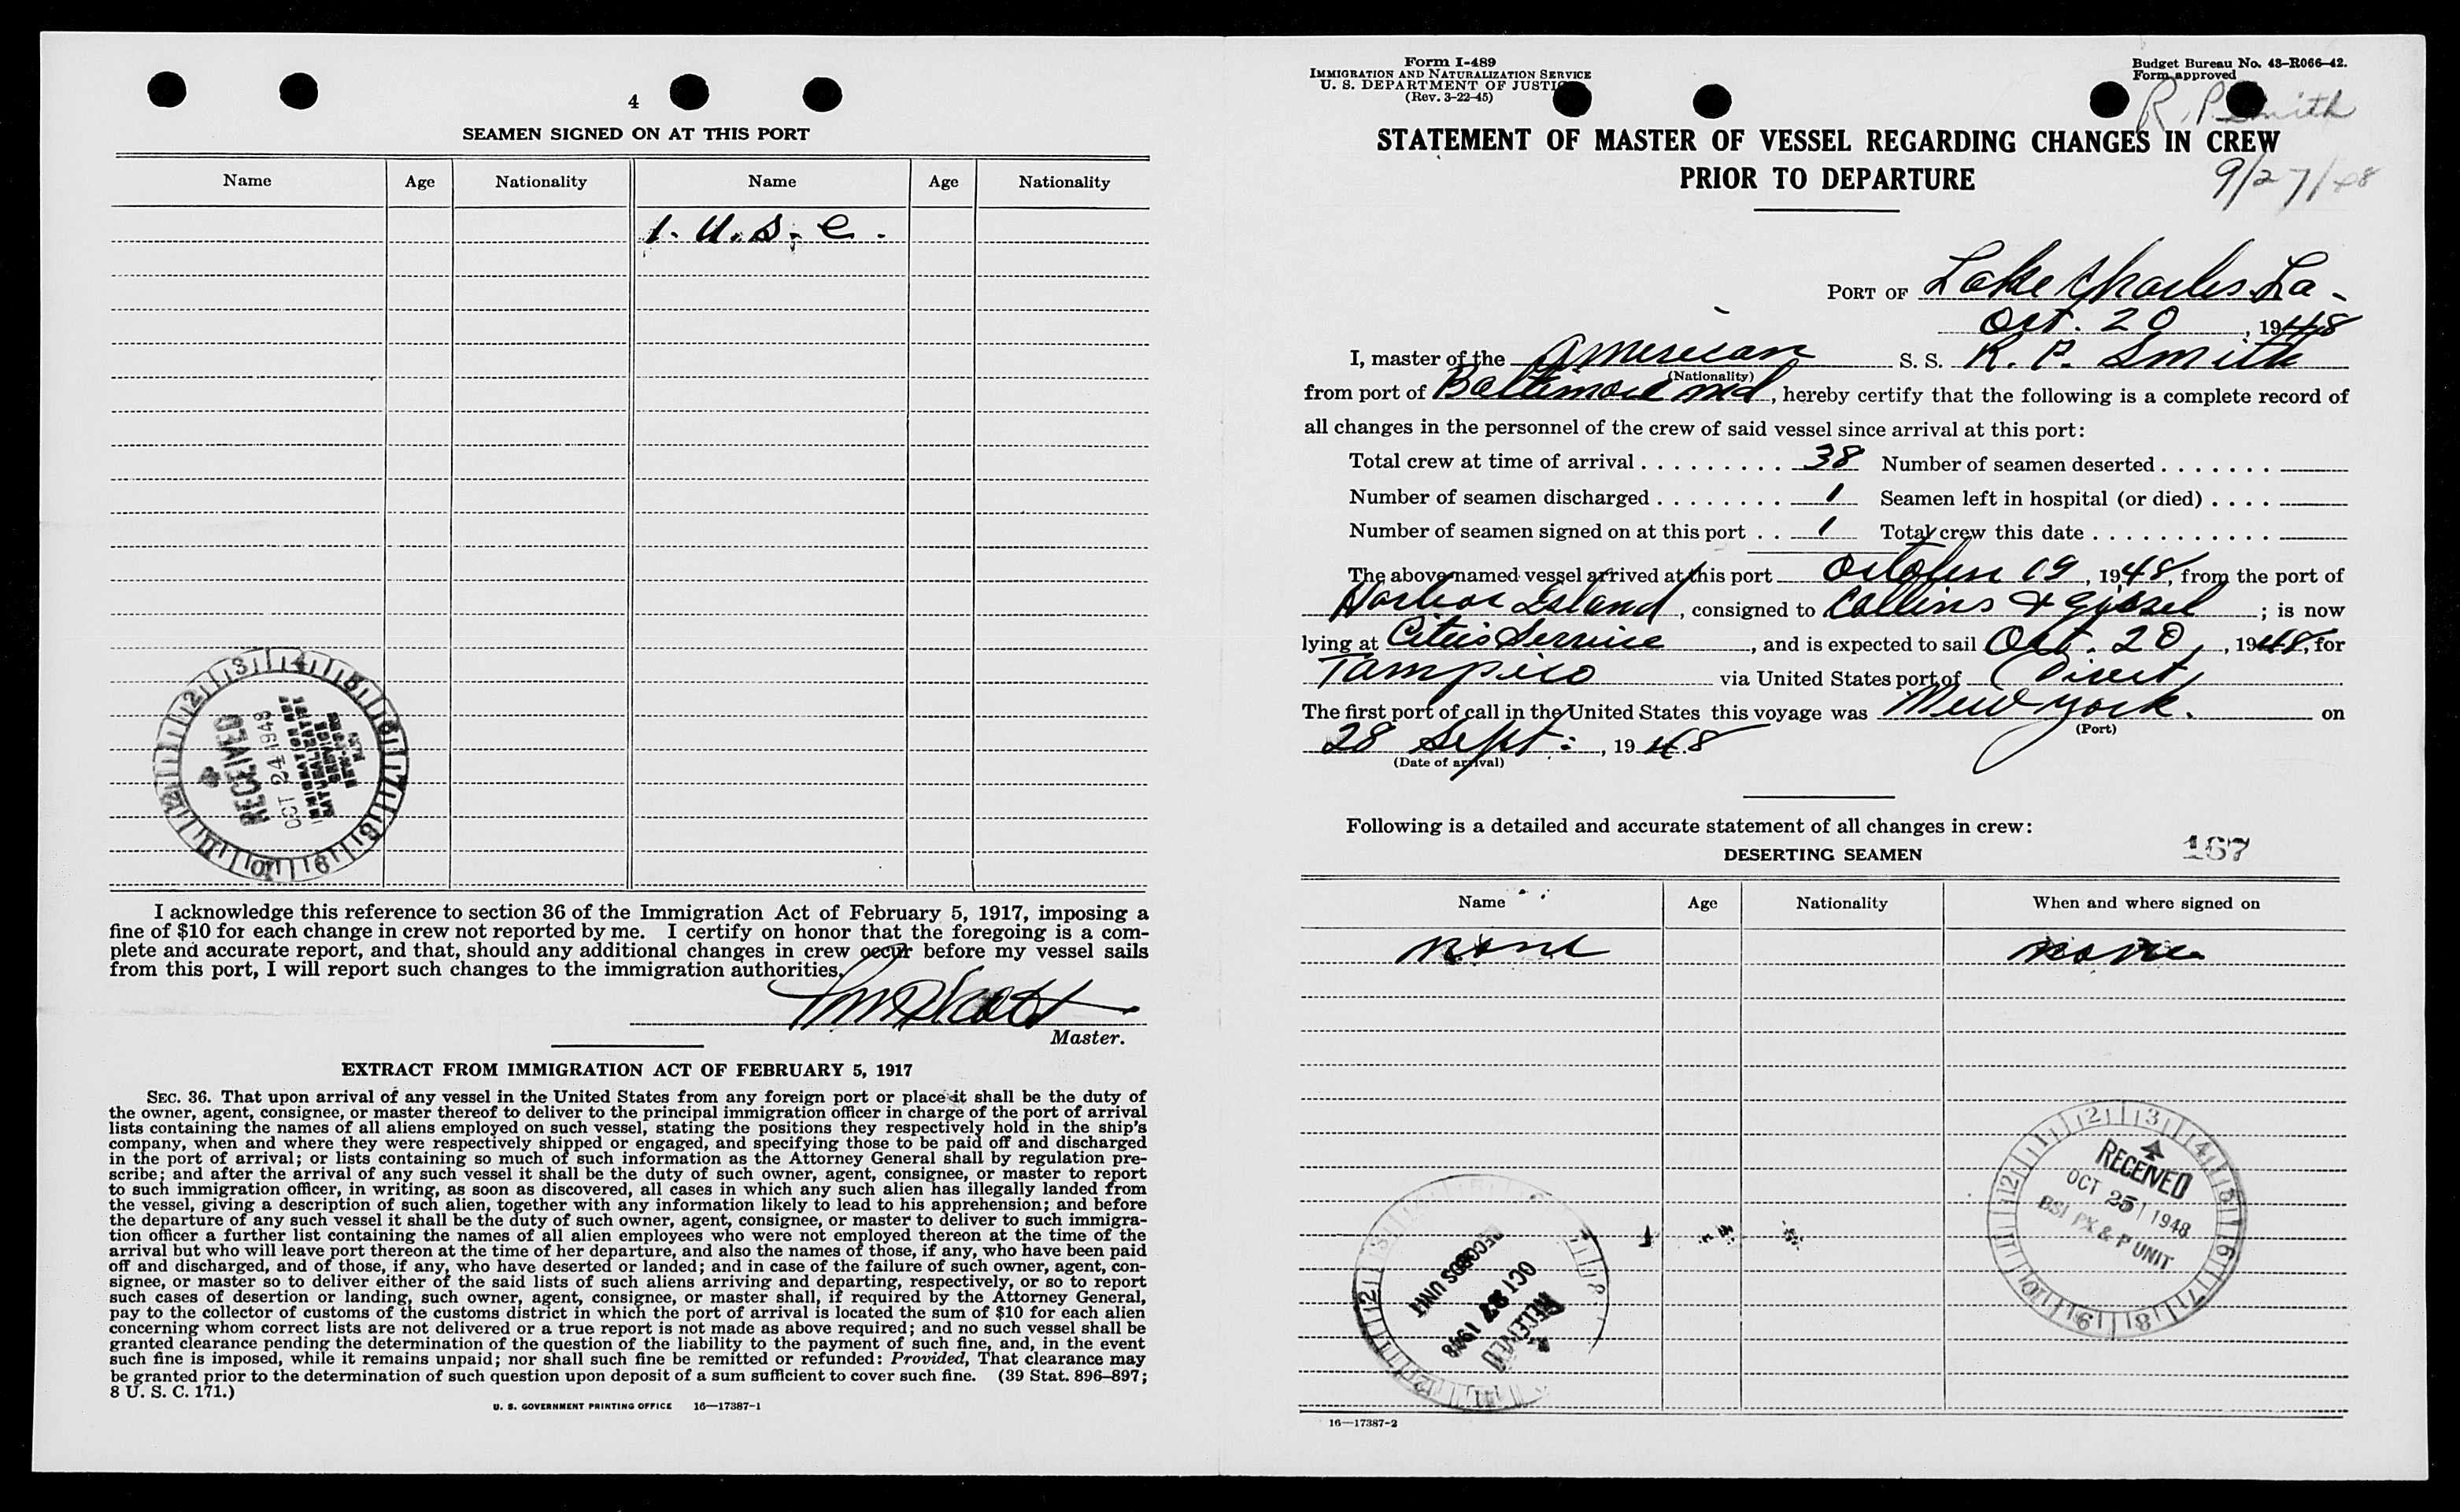 4
SEAMEN SIGNED ON AT THIS PORT
Name Age Nationality Name Age Nationality
1. U. S. C.
RECEIVED
OCT 24 1948
IMMIGRATION AND
NATURALIZATION
SERVICE
I acknowledge this reference to section 36 of the Immigration Act of February 5, 1917, imposing a
fine of $10 for each change in crew not reported by me. I certify on honor that the foregoing is a com-
plete and accurate report, and that, should any additional changes in crew occur before my vessel sails
from this port, I will report such changes to the immigration authorities.
Master.
EXTRACT FROM IMMIGRATION ACT OF FEBRUARY 5, 1917
SEC. 36. That upon arrival of any vessel in the United States from any foreign port or place it shall be the duty of
the owner, agent, consignee, or master thereof to deliver to the principal immigration officer in charge of the port of arrival
lists containing the names of all aliens employed on such vessel, stating the positions they respectively hold in the ship's
company, when and where they were respectively shipped or engaged, and specifying those to be paid off and discharged
in the port of arrival; or lists containing so much of such information as the Attorney General shall by regulation pre-
scribe; and after the arrival of any such vessel it shall be the duty of such owner, agent, consignee, or master to report
to such immigration officer, in writing, as soon as discovered, all cases in which any such alien has illegally landed from
the vessel, giving a description of such alien, together with any information likely to lead to his apprehension; and before
the departure of any such vessel it shall be the duty of such owner, agent, consignee, or master to deliver to such immigra-
tion officer a further list containing the names of all alien employees who were not employed thereon at the time of the
arrival but who will leave port thereon at the time of her departure, and also the names of those, if any, who have been paid
off and discharged, and of those, if any, who have deserted or landed; and in case of the failure of such owner, agent, con-
signee, or master so to deliver either of the said lists of such aliens arriving and departing, respectively, or so to report
such cases of desertion or landing, such owner, agent, consignee, or master shall, if required by the Attorney General,
pay to the collector of customs of the customs district in which the port of arrival is located the sum of $10 for each alien
concerning whom correct lists are not delivered or a true report is not made as above required; and no such vessel shall be
granted clearance pending the determination of the question of the liability to the payment of such fine, and, in the event
such fine is imposed, while it remains unpaid; nor shall such fine be remitted or refunded: Provided, That clearance may
be granted prior to the determination of such question upon deposit of a sum sufficient to cover such fine. (39 Stat. 896–897;
8 U. S. C. 171.)
U. S. GOVERNMENT PRINTING OFFICE 16—17387-1
Form I-489
IMMIGRATION AND NATURALIZATION SERVICE
U. S. DEPARTMENT OF JUSTICE
(Rev. 3-22-45)
Budget Bureau No. 43-R066-42.
Form approved
R. P. Smith
STATEMENT OF MASTER OF VESSEL REGARDING CHANGES IN CREW
PRIOR TO DEPARTURE
9/27/48
PORT OF Lake Charles La.
Oct. 20, 1948
I, master of the American S. S. R. P. Smith
(Nationality)
from port of Baltimore Md, hereby certify that the following is a complete record of
all changes in the personnel of the crew of said vessel since arrival at this port:
Total crew at time of arrival . . . . . . . . . 38 Number of seamen deserted . . . . . . .
Number of seamen discharged . . . . . . . . 1 Seamen left in hospital (or died) . . . .
Number of seamen signed on at this port . . 1 Total crew this date . . . . . . . . . . .
The above-named vessel arrived at this port October 19, 1948, from the port of
Harbor Island, consigned to Collins & Gissel; is now
lying at Cities Service, and is expected to sail Oct. 20, 1948, for
Tampico via United States port of Direct
The first port of call in the United States this voyage was New York. on
(Port)
28 Sept:, 1948
(Date of arrival)
Following is a detailed and accurate statement of all changes in crew:
167
DESERTING SEAMEN
Name Age Nationality When and where signed on
none none
RECEIVED
OCT 25 1948
BSI PX & P UNIT
RECORDS UNIT
OCT 27 1948
RECEIVED
16—17387-2